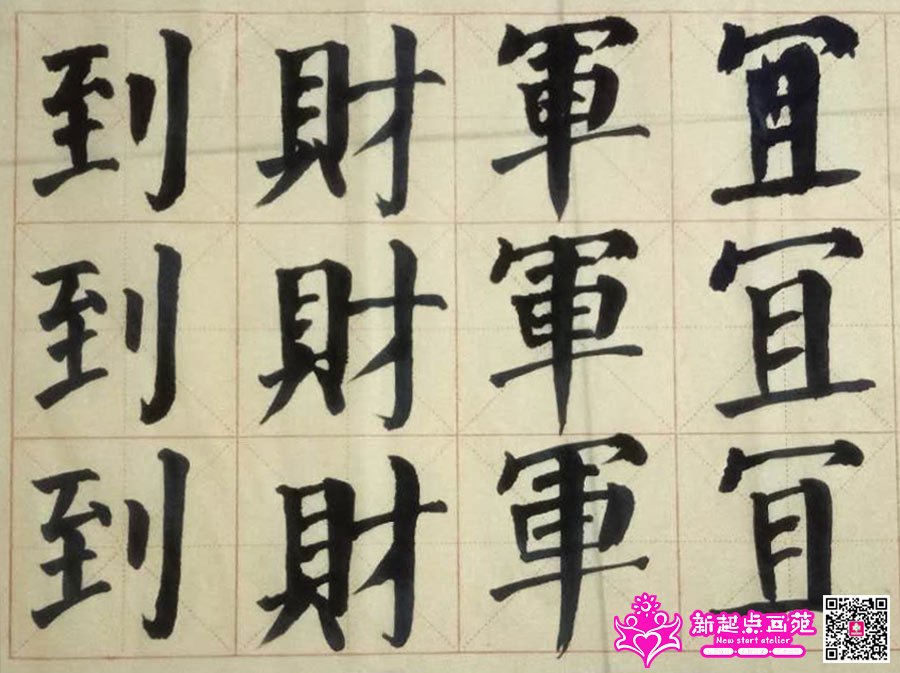 到財軍冝
到財軍冝
到財軍冝
新起点画苑
New start atelier